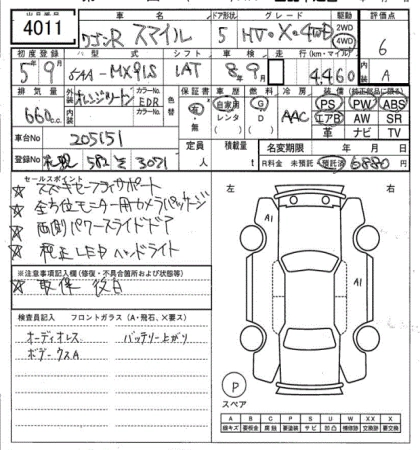 4011
車名
ワゴンR スマイル
ドア形状
5
グレード
HV・X・4WD
駆動
2WD
4WD
評価点
6
初度登録
5年9月
型式
5AA-MX91S
シフト
IAT
車検
8年9月
走行
(km・マイル)
4,460
内装
A
排気量
660cc
外装
オレンジツートン
カラーNo.
EDR
内装
カラーNo.
色替
保証書
有・無
車歴
自家用
レンタ
燃料
G
D
冷房
AAC
装備(純正部品に限る)
PS PW ABS
エアB AW SR
革 ナビ TV
車台No
205151
定員
人
積載量
名変期限
年 月 日
登録No
札幌 582 を 3021
R料金 未預託 預託済 6880円
セールスポイント
☆ スズキセーフティサポート
☆ 全方位モニター用カメラパッケージ
☆ 両側パワースライドドア
☆ 純正LEDヘッドライト
※注意事項記入欄(修復・不具合箇所および状態等)
☆ 取保 後日
検査員記入
フロントガラス(A・飛石、×要ス)
オーディオレス
バッテリー上がり
ボデークスA
左
右
A1
A1
P
スペア
A B C P S U W X XX
線キズ 要板金 腐錆 要塗装 サビ 凹凸 補修跡 要交換